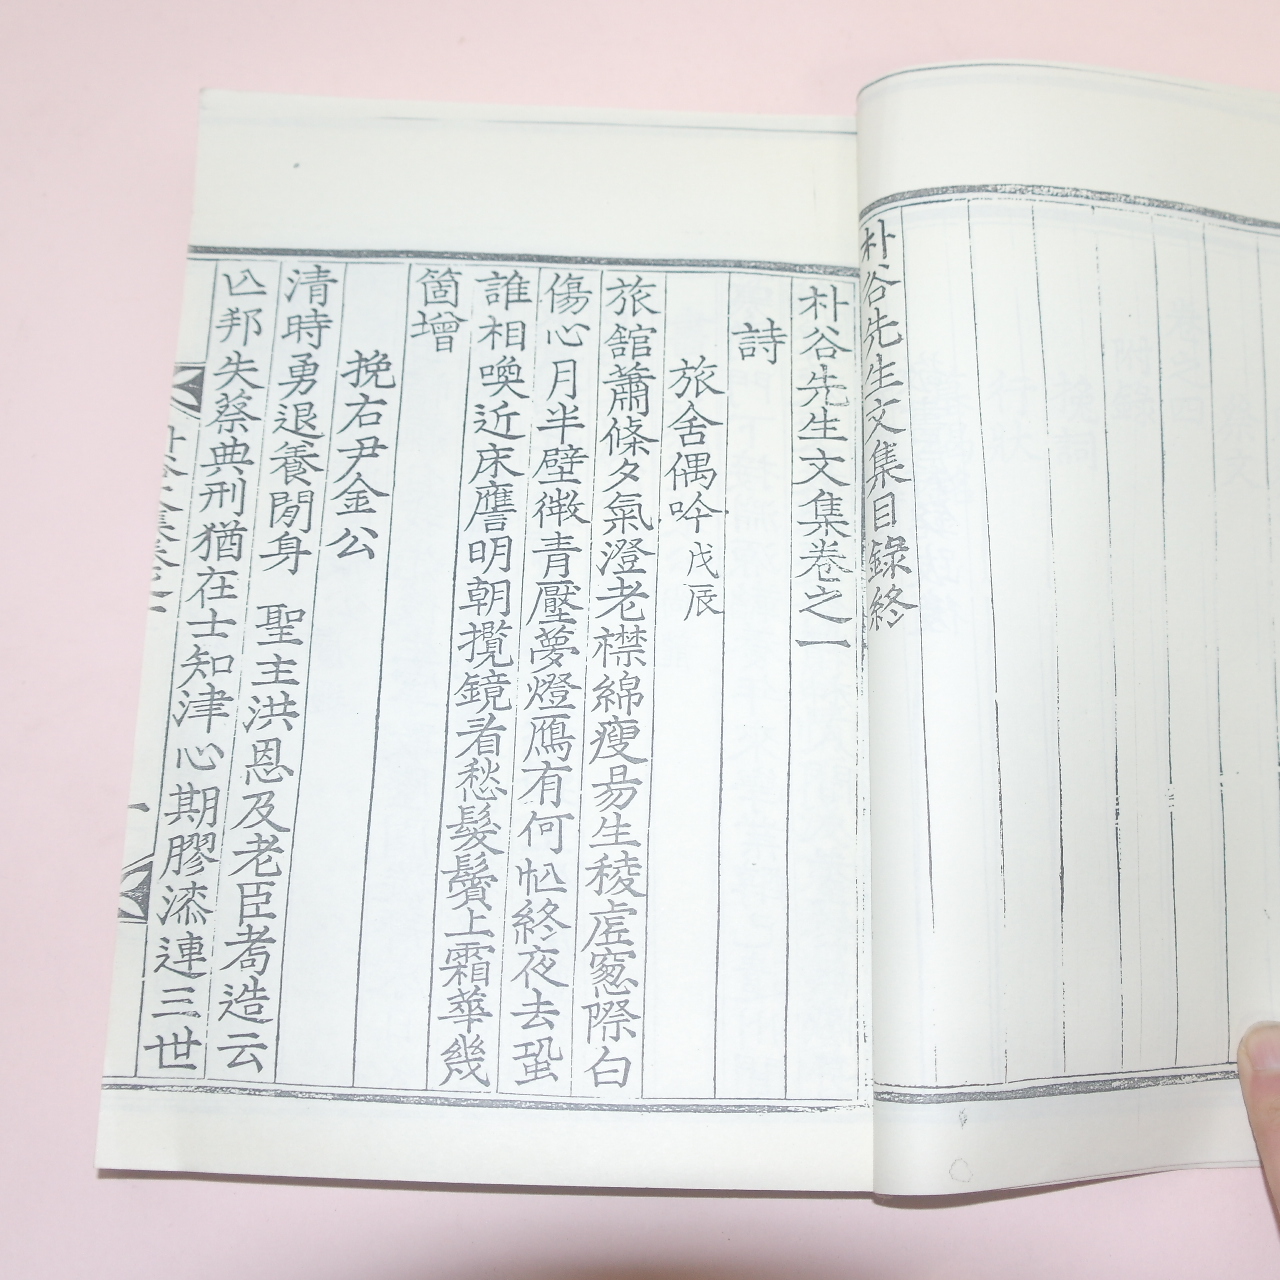 朴谷先生文集目錄終
朴谷先生文集卷之一
詩
旅舍偶吟 戊辰
旅舘蕭條夕氣澄老襟綿瘦昜生稜虛窓際白
傷心月半壁微青壓夢燈鴈有何忙終夜去蛩
誰相喚近床譍明朝攬鏡看愁髮鬢上霜華幾
箇增
挽右尹金公
清時勇退養閒身 聖主洪恩及老臣耈造云
亾邦失蔡典刑猶在士知津心期膠漆連三世